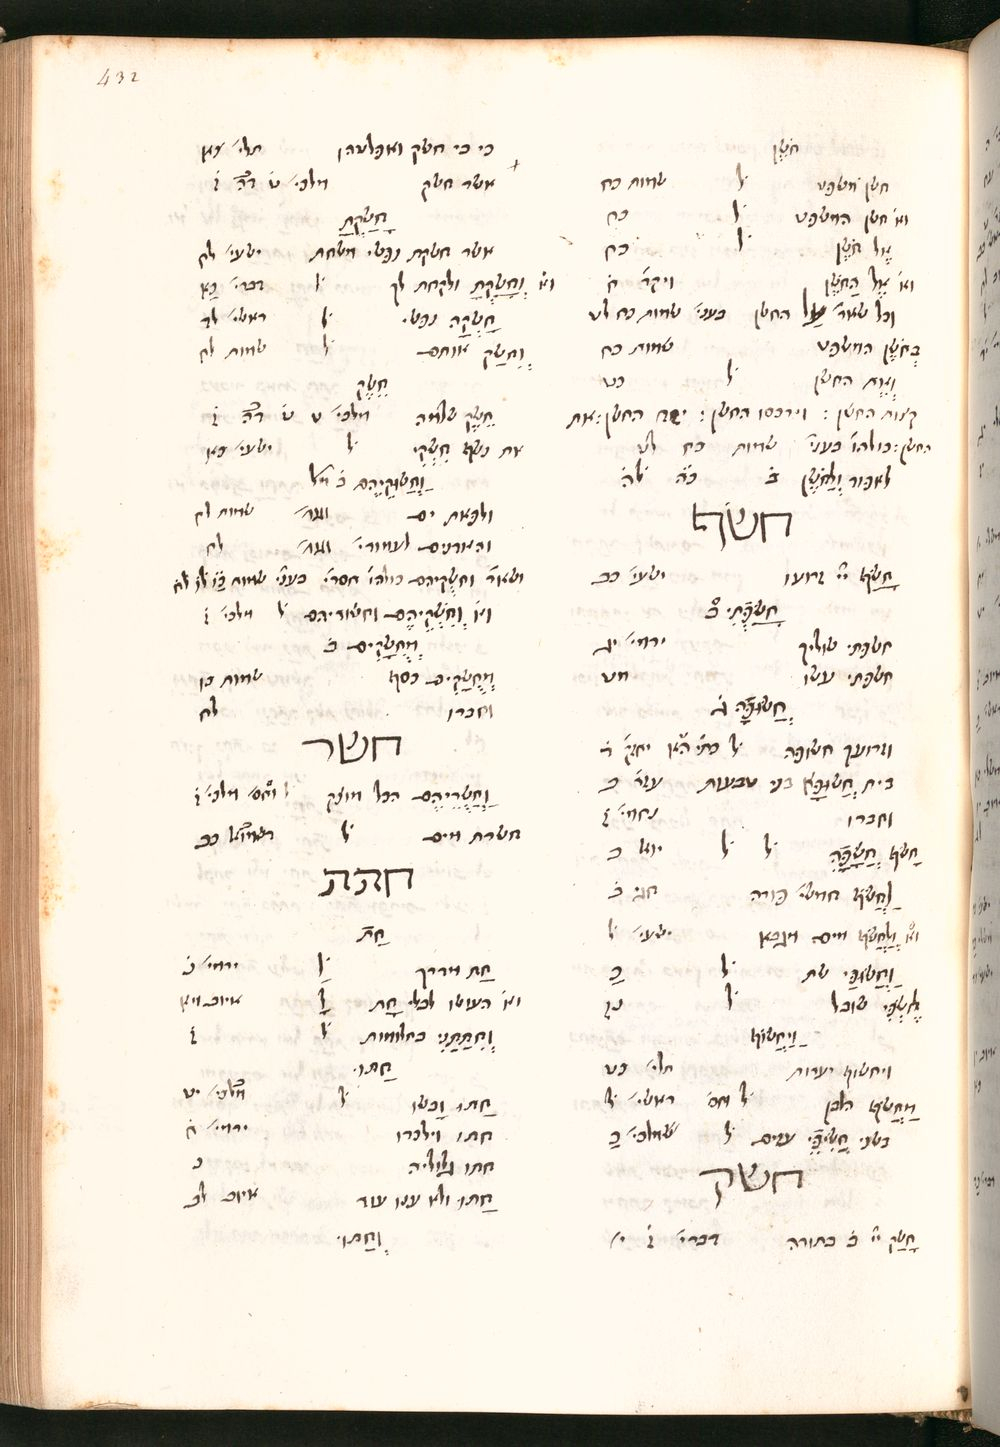 432
חֹשֶׁן
חשן משפט ל׳ שמות כח
וא׳ חשן המשפט ל׳ כח
אֶל חֹשֶׁן ל׳ כח
וא׳ אֶל הַחֹשֶׁן ויקר׳ ח
וכל שאר׳ על החשן בעני׳ שמות כח לט
בְּחֹשֶׁן המשפט שמות כח
וְאֶת החשן ל׳ כט
קצות החשן : וירכסו החשן : החשן : את
החשן : כולהו׳ בעני׳ שמות כח לט
לאפור וְלַחֹשֶׁן ב׳ כה לה
חשף
חָשַׂף יי׳ זרועו ישעי׳
חָשַׂפְתִּי ב׳
חשפתי שוליך ירמי׳ יג
חשפתי עשו מט
חֲשׂוּפָה ג׳
וזרועך חשופה ל׳ יחזק׳ ד
חֲשׂוּפָא בני טבעות עזר׳ ב
וחברו נחמי׳ ז
חָשֹׂף חֲשָׂפָהּ ל׳ ל׳ יואל
לַחְשֹׂף חמשי׳ פורה חגי ב
וא׳ וְלַחְשֹׂף מים מגבא ישעי׳ ל
וַחֲשׂוּפַי שת ל׳ כ
חֶשְׂפִּי שובל ל׳ מז
וַיֶּחֱשׂוֹף
ויחשוף יערות תלי׳ כט
מַחְשֹׂף הלבן ל׳ וחס׳ ראשי׳ ל
כשני חֲשִׂפֵי עזים ל׳ מלכי׳ כ
חשק
חָשַׁק יי׳ ב׳ בתורה דברי׳ ז י׳
כי בי חשק ואפלטהו תלי׳ צא
אשר חשק מלכי׳ ט׳ דה׳ ז
חָשַׁקְתָּ
אשר חשקת נפשי משחת ישעי׳ לח
וא׳ וְחָשַׁקְתָּ ולקחת לך ל׳ דברי׳ כא
חָשְׁקָה נפשי ל׳ ראשי׳ לד
וְחִשַּׁק אותם ל׳ שמות לח
חֵשֶׁק
חֵשֶׁק שלמה מלכי׳ ט ט׳ דה׳ ז
את נשף חִשְׁקִי ל׳ ישעי׳ כא
וַחֲשׁוּקֵיהֶם ב׳ מל׳
ולפאת ים שמות לח
והאדנים לעמודי׳ לח
ושאר׳ וחשקיהם כולהו׳ חסר׳ בעני׳ שמות כז לו לח
וא׳ וְחִשֻּׁקֵיהֶם וחשוריהם ל׳ מלכי׳ ז
מְחֻשָּׁקִים ב׳
מְחֻשָּׁקִים כסף שמות כז
וחברו לח
חשר
וְחִשֻּׁרֵיהֶם הכל מוצק ל׳ וחס׳ מלכי׳ ז
חשרת מים ל׳ כב
חתת
חַת
חַת מדרך ל׳ ירמי׳
וא׳ העושו לבלי חָת ל׳ איוב מא
וְחִתַּתַּנִי בחלומות ל׳ ז
חַתּוּ
חַתּוּ וָבֹשׁוּ ל׳ מלכי׳ יט
חתו וילכדו ירמי׳ ח
חתו גלוליה נ
חַתּוּ ולא ענו עוד איוב לב
וְחַתּוּ